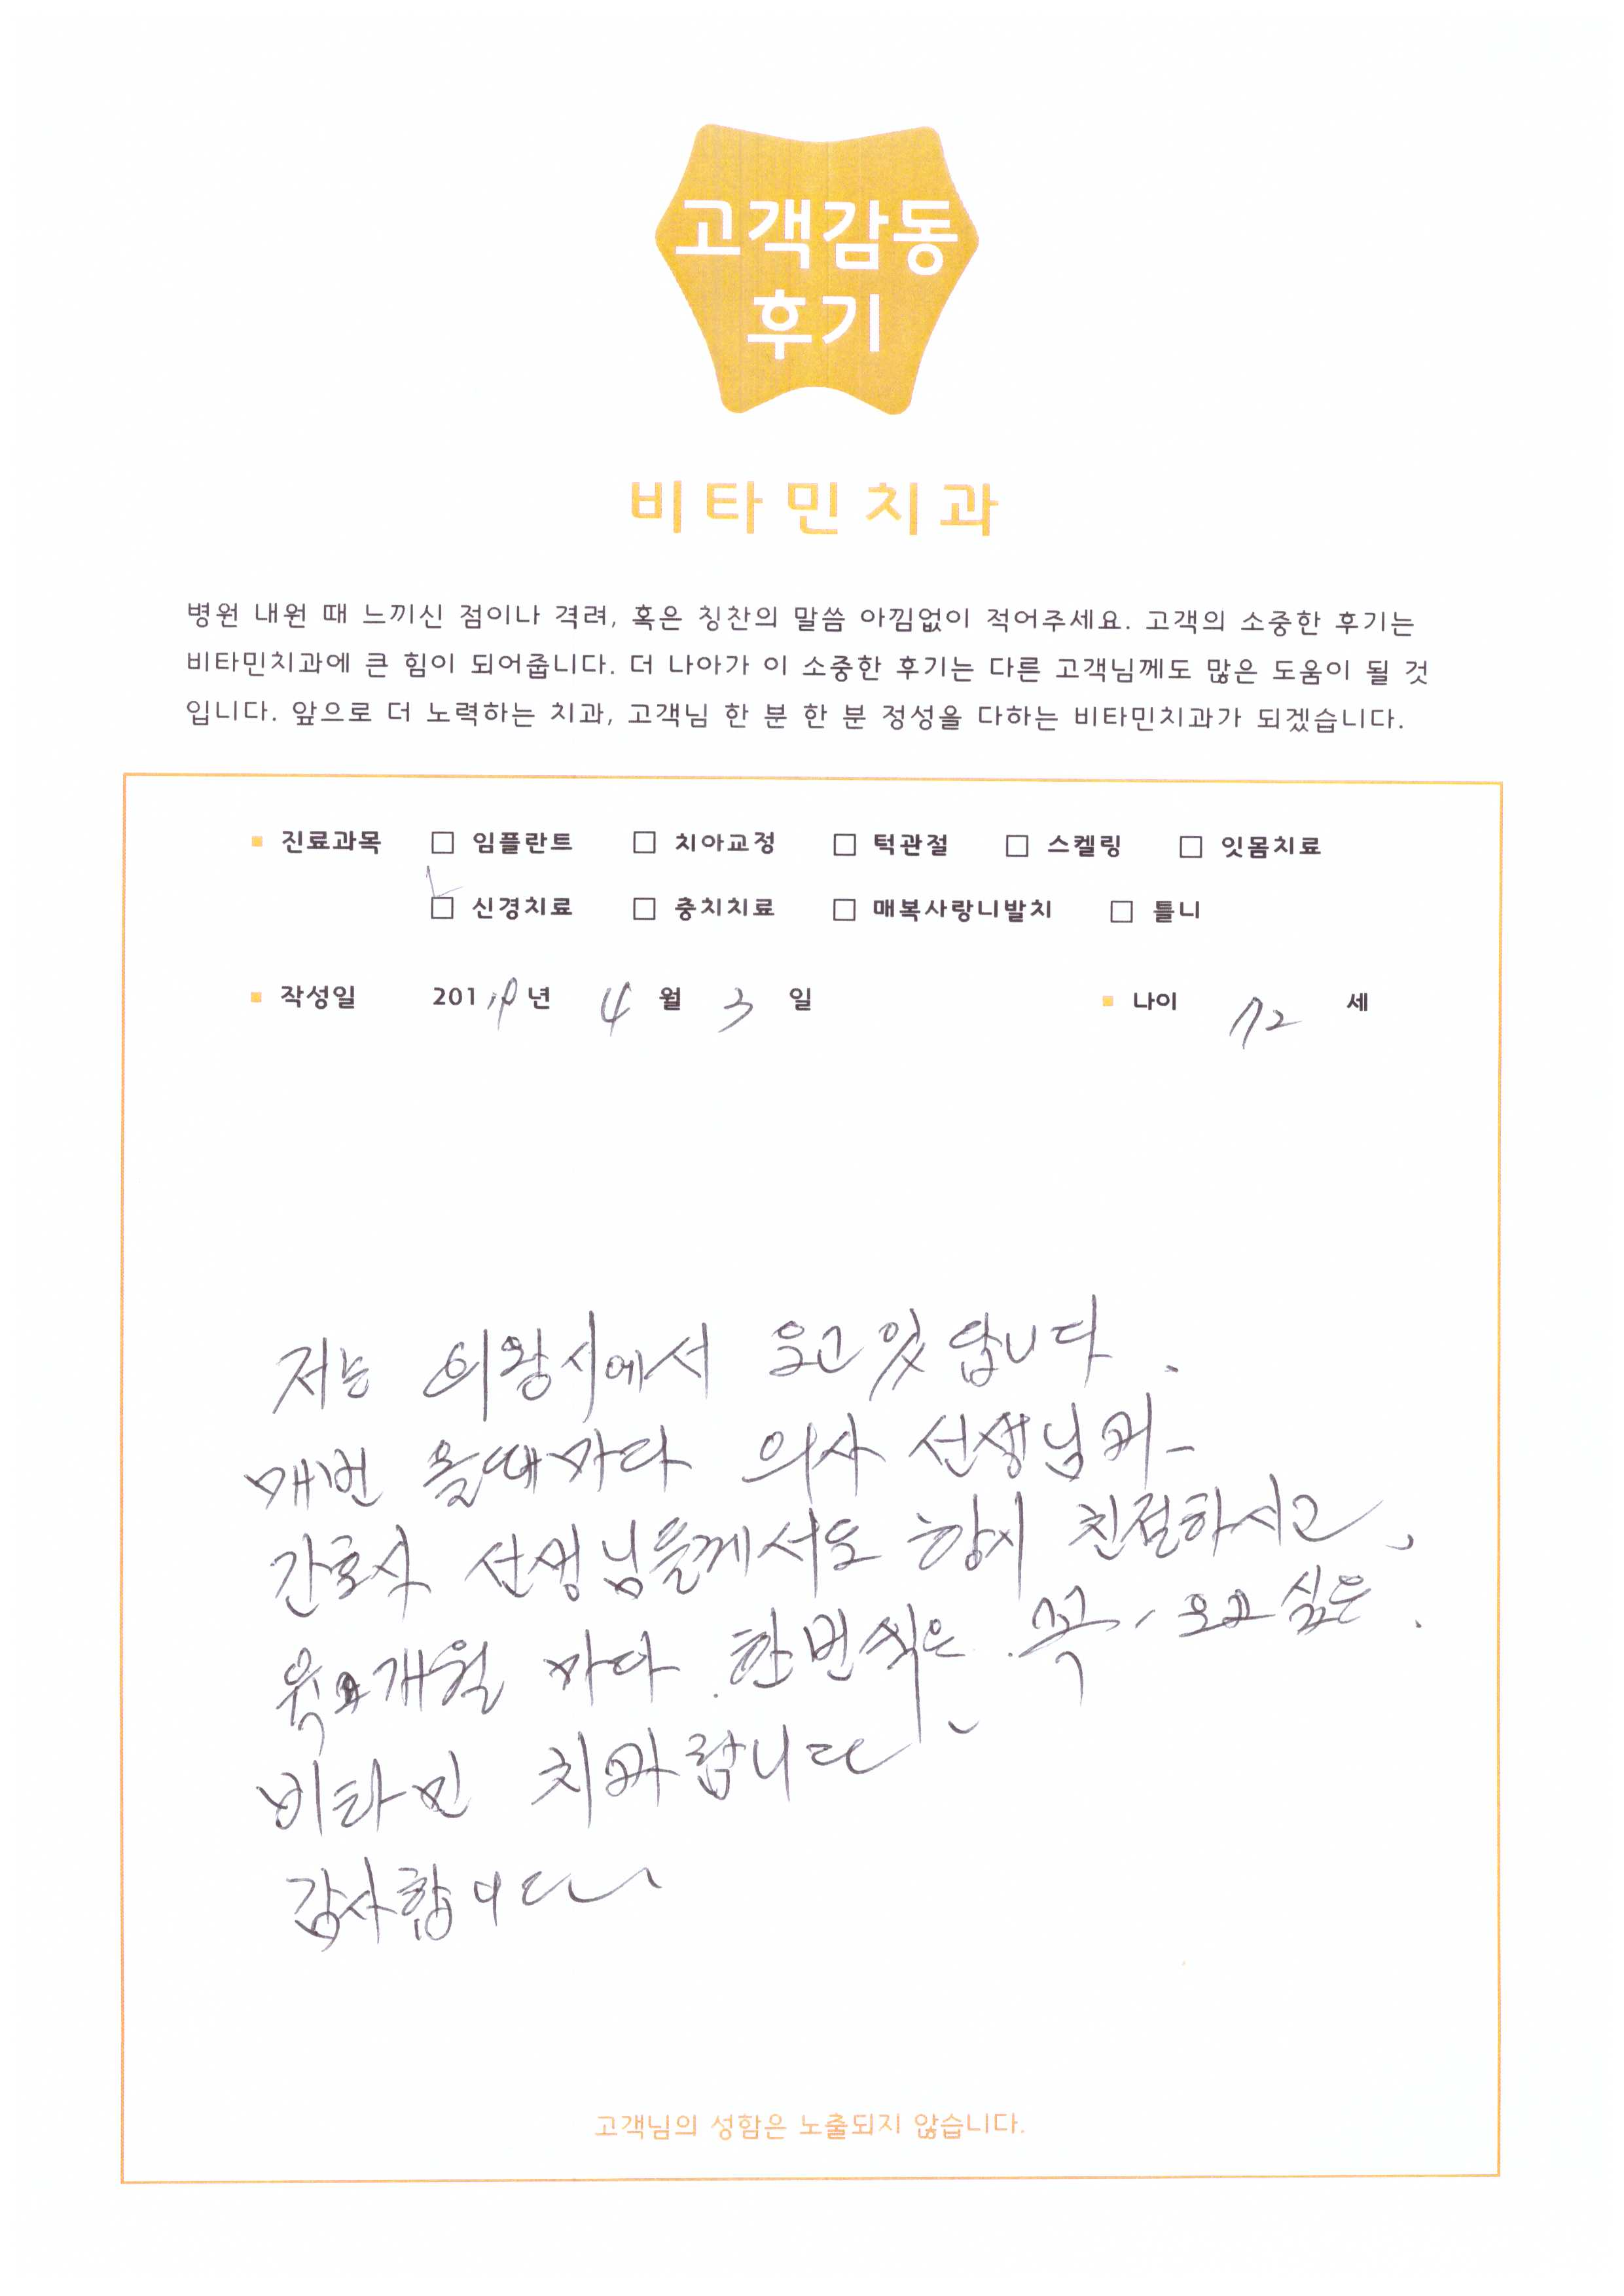 고객감동
후기
비타민치과
병원 내원 때 느끼신 점이나 격려, 혹은 칭찬의 말씀 아낌없이 적어주세요. 고객의 소중한 후기는
비타민치과에 큰 힘이 되어줍니다. 더 나아가 이 소중한 후기는 다른 고객님께도 많은 도움이 될 것
입니다. 앞으로 더 노력하는 치과, 고객님 한 분 한 분 정성을 다하는 비타민치과가 되겠습니다.
진료과목 임플란트 치아교정 턱관절 스켈링 잇몸치료
신경치료 충치치료 매복사랑니발치 틀니
작성일 2019년 4월 3일 나이 72 세
저는 의왕시에서 오고있답니다.
매번 올때마다 의사 선생님과
간호사 선생님들께서도 항시 친절하시고,
육개월 마다 한번씩은 꼭, 오고싶은
비타민 치과랍니다
감사합니다
고객님의 성함은 노출되지 않습니다.